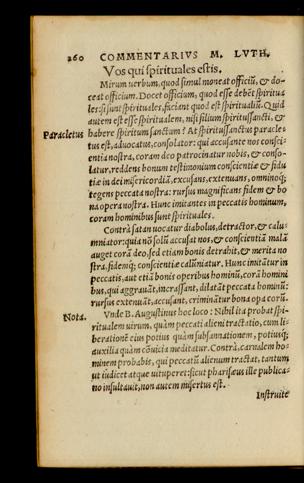 260 COMMENTARIVS M. LVTH.
Vos qui spirituales estis.
Mirum uerbum, quod simul moneat officiũ, & do-
ceat officium. Docet officium, quod esse debẽt spiritua
les: si sunt spirituales, faciant quod est spiritualiũ. Quid
autem est esse spiritualem, nisi filium spiritussancti, &
Paracletus habere spiritum sanctum? At spiritussanctus paracle-
tus est, aduocatus, consolator: qui accusante nos consci-
entia nostra, coram deo patrocinatur nobis, & conso-
latur, reddens bonum testimonium conscientiæ & fidu
tiæ in dei misericordiã, excusans, extenuans, omninoq;
tegens peccata nostra: rursus magnificans fidem & bo
na opera nostra. Hunc imitantes in peccatis hominum,
coram hominibus sunt spirituales.
Contrà satan uocatur diabolus, detractor, & calu-
mniator: quia nõ solũ accusat nos, & conscientiã malã
auget corã deo, sed etiam bonis detrahit, & merita no
stra, fidemq; conscientiæ calũniatur. Hunc imitãtur in
peccatis, aut etiã bonis operibus hominũ, corã homini
bus, qui aggrauãt, incrassant, dilatãt peccata hominũ:
rursus extenuãt, accusant, criminãtur bona opa eorũ.
Nota. Vnde B. Augustinus hoc loco: Nihil ita probat spi-
ritualem uirum, quàm peccati alieni tractatio, cum li-
berationẽ eius potius quàm subsannationem, potiusq;
auxilia quàm cõuicia meditatur. Contrà, carnalem ho-
minem probabis, qui peccatũ alienum tractat, tantum
ut iudicet atque uituperet: sicut pharisæus ille publica-
no insultauit, non autem misertus est.
Instruite